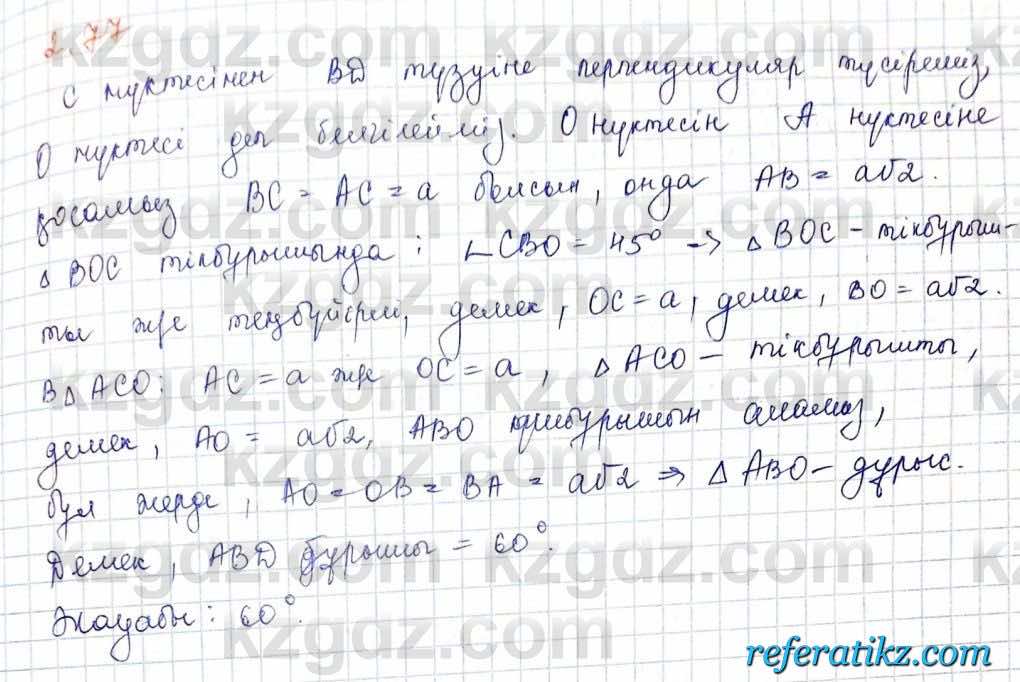 2.77
С нүктесінен BD түзуіне перпендикуляр түсіреміз,
О нүктесі деп белгілейміз. О нүктесін А нүктесіне
қосамыз BC = AC = a болсын, онда AB = a√2.
△ BOC тікбұрышында: ∟CBO = 45° → △ BOC – тікбұрыш-
ты және теңбүйірлі, демек, OC = a, демек, BO = a√2.
B△ ACO: AC = a және OC = a, △ ACO – тікбұрышты,
демек, AO = a√2, ABO үшбұрышын аламыз,
бұл жерде, AO = OB = BA = a√2 ⇒ △ ABO – дұрыс.
Демек, ABD бұрышы = 60°.
Жауабы: 60°.
kzgdz.com
referatikz.com